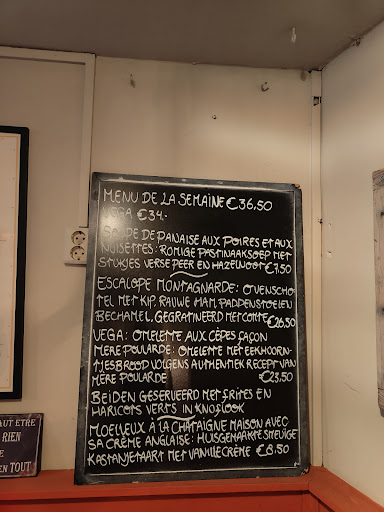 MENU DE LA SEMAINE €36,50
VEGA €34.
DE PANAISE AUX POIRES ET AUX
NOISETTES: ROMIGE PASTINAAKSOEP MET
STUKJES VERSE PEER EN HAZELNOOT €7,50
ESCALOPE MONTAGNARDE: OVENSCHO
TEL MET KIP, RAUWE HAM, PADDENSTOELEN
BECHAMEL, GEGRATINEERD MET COMTÉ €26,50
VEGA: OMELETTE AUX CÈPES FAÇON
MÈRE POULARDE: OMELETTE MET EEKHOORN-
TJESBROOD VOLGENS AUTHENTIEK RECEPT VAN
MÈRE POULARDE €23,50
BEIDEN GESERVEERD MET FRITES EN
HARICOTS VERTS IN KNOFLOOK
MOELLEUX À LA CHÂTAIGNE MAISON AVEC
SA CRÈME ANGLAISE: HUISGEMAAKTE SMEUÏGE
KASTANJETAART MET VANILLECRÈME €8,50
AUT ÊTRE
RIEN
DE
EN TOUT